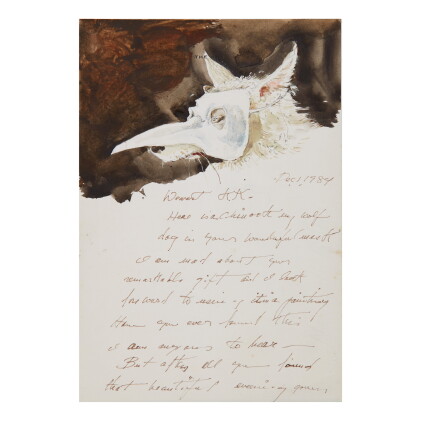 Dec, 1984
Dearest KK -
Here was Chinook my wolf
dog in your wonderful mask
I am mad about your
remarkable gift and I look
forward to using it in a painting
Have you ever found this
I am anxious to hear -
But after all you found
that beautiful